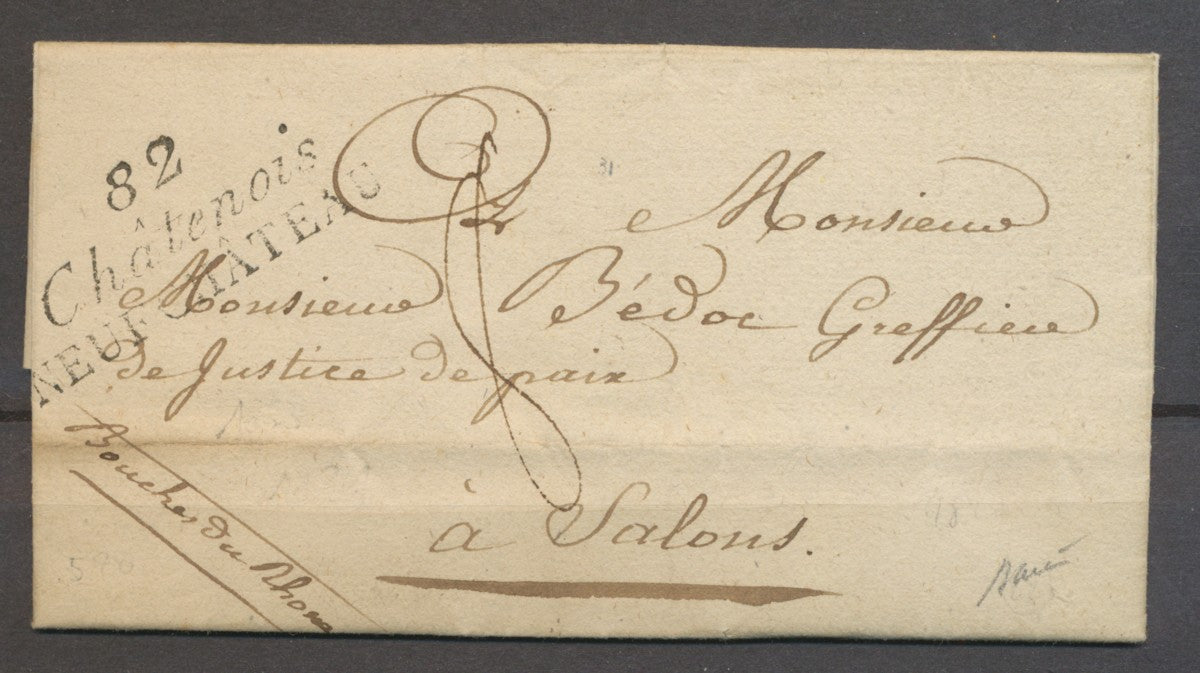 82
Châtenois
NEUFCHÂTEAU
31
A Monsieur
Monsieur Bédoc Greffier
de Justice de paix
à Salons.
Bouches du Rhone